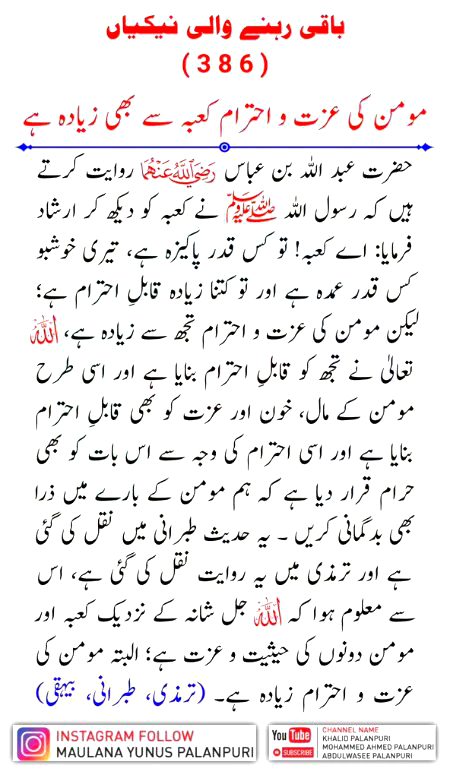 باقی رہنے والی نیکیاں
(386)
مومن کی عزت و احترام کعبہ سے بھی زیادہ ہے
حضرت عبد اللہ بن عباس رَضِیَ اللّٰہُ عَنْہُمَا روایت کرتے
ہیں کہ رسول اللہ ﷺ نے کعبہ کو دیکھ کر ارشاد
فرمایا: اے کعبہ! تو کس قدر پاکیزہ ہے، تیری خوشبو
کس قدر عمدہ ہے اور تو کتنا زیادہ قابلِ احترام ہے؛
لیکن مومن کی عزت و احترام تجھ سے زیادہ ہے، اللہ
تعالیٰ نے تجھ کو قابلِ احترام بنایا ہے اور اسی طرح
مومن کے مال، خون اور عزت کو بھی قابلِ احترام
بنایا ہے اور اسی احترام کی وجہ سے اس بات کو بھی
حرام قرار دیا ہے کہ ہم مومن کے بارے میں ذرا
بھی بدگمانی کریں ۔ یہ حدیث طبرانی میں نقل کی گئی
ہے اور ترمذی میں یہ روایت نقل کی گئی ہے، اس
سے معلوم ہوا کہ اللہ جل شانہ کے نزدیک کعبہ اور
مومن دونوں کی حیثیت و عزت ہے؛ البتہ مومن کی
عزت و احترام زیادہ ہے۔ (ترمذی، طبرانی، بیہقی)
INSTAGRAM FOLLOW
MAULANA YUNUS PALANPURI
You Tube
SUBSCRIBE
CHANNEL NAME
KHALID PALANPURI
MOHAMMED AHMED PALANPURI
ABDULWASEE PALANPURI